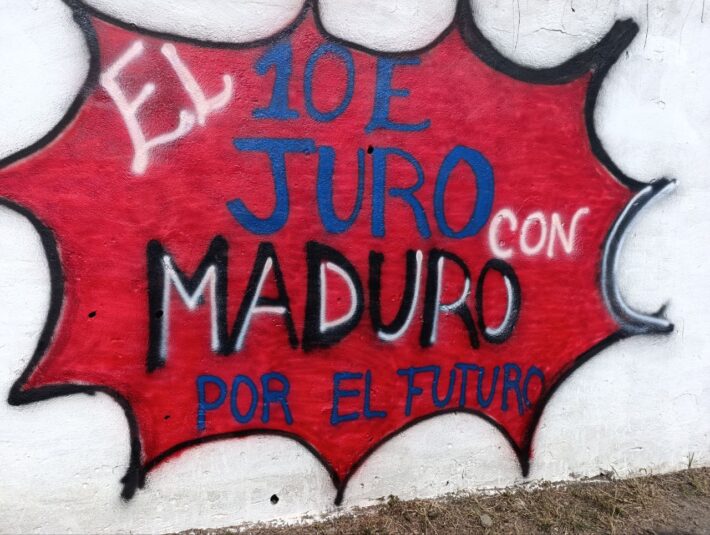 EL 10E
JURO
CON
MADURO
POR EL FUTURO